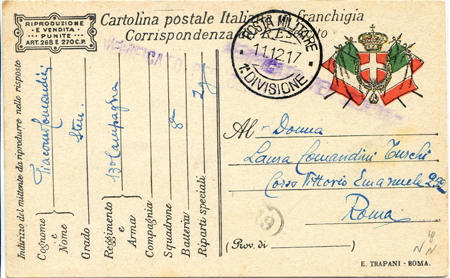 RIPRODUZIONE
E VENDITA
PUNITE
ART. 268 E 270 C.P.
Cartolina postale Italiana in franchigia
Corrispondenza
POSTA MILITARE
11.12.17
1ª DIVISIONE
VERIFICATO
Indirizzo del mittente da riprodurre nelle risposte
Cognome e Nome Giacomo Comandini
Grado Sten.
Reggimento e Arma 130 Campagna
Compagnia
Squadrone
Batteria 8ª
Riparti speciali
Al- Donna
Laura Comandini Turchi
Corso Vittorio Emanuele
Roma
(Prov. di )
E. TRAPANI - ROMA.